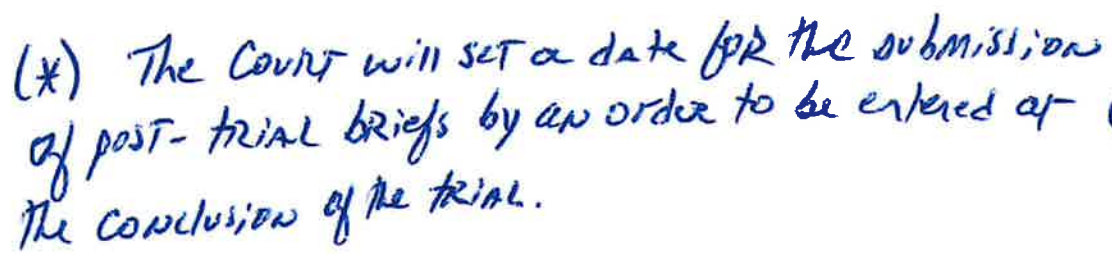 (*) The Court will set a date for the submission
of post-trial briefs by an order to be entered at
the conclusion of the trial.